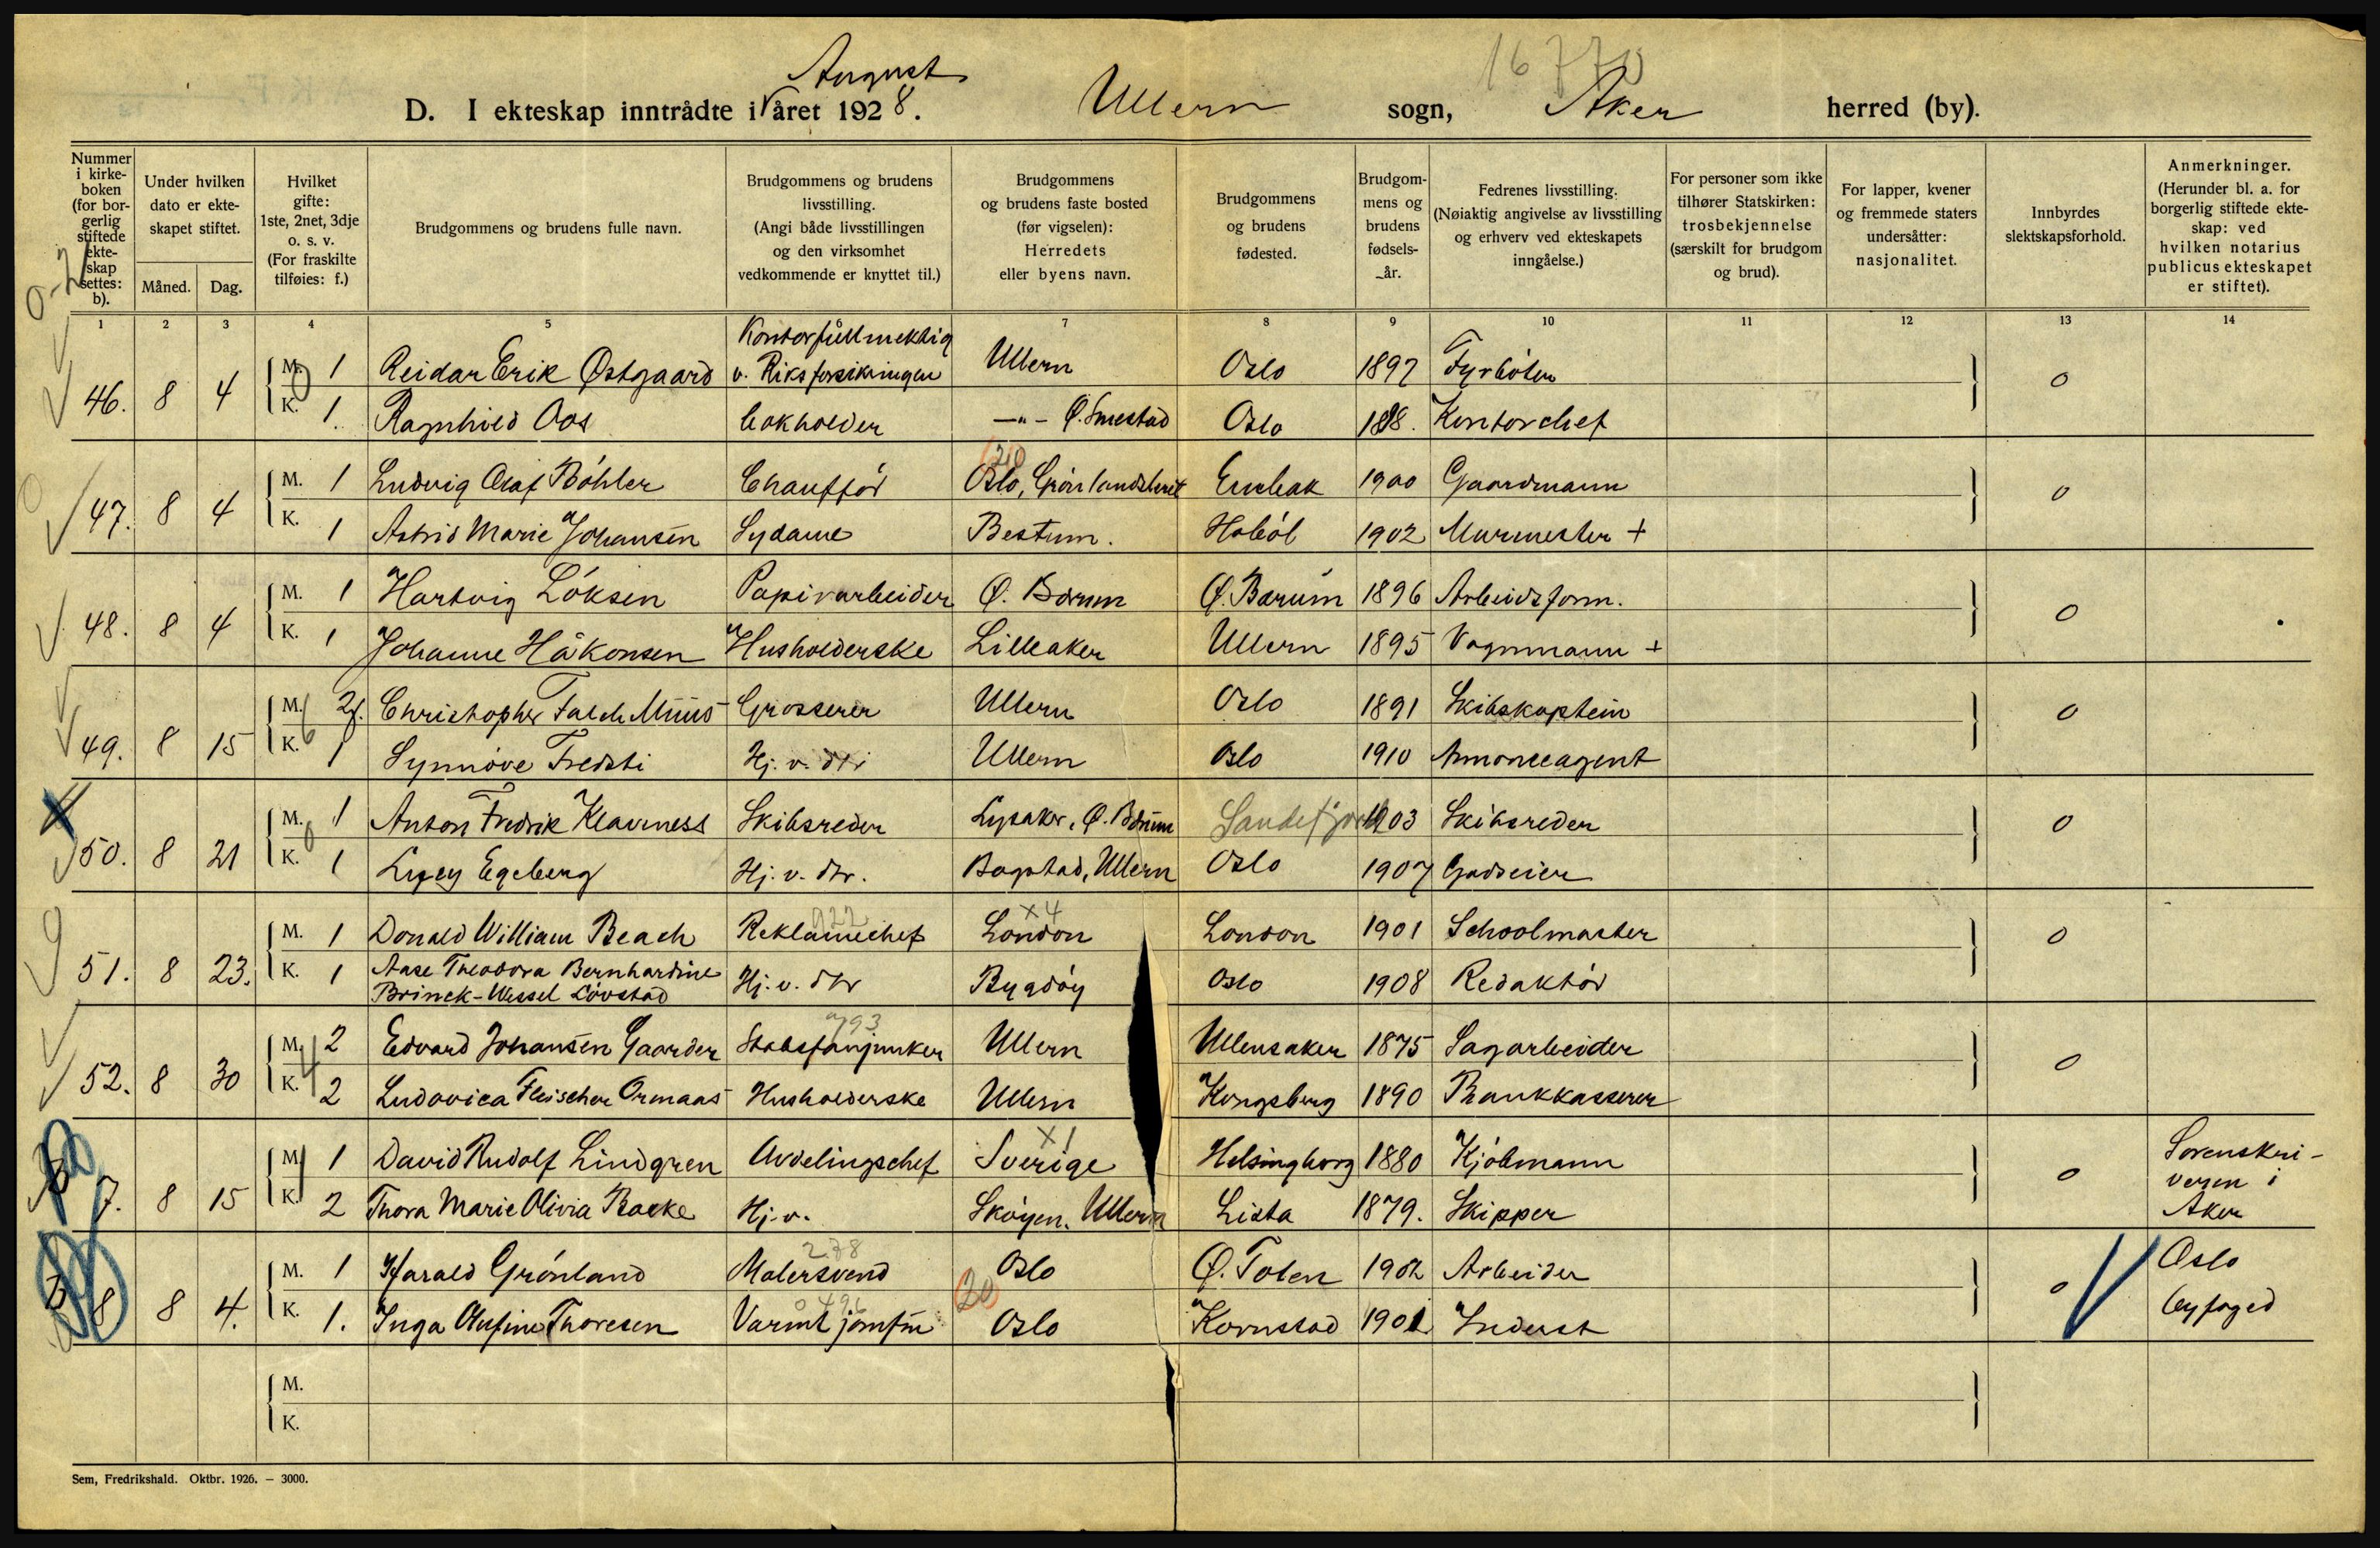 August
16770
D. I ekteskap inntrådte i året 1928. Ullern sogn, Aker herred (by).
Nummer i kirke-boken (for bor-gerlig stiftede ekte-skap settes: b).
Under hvilken dato er ekte-skapet stiftet.
Måned. Dag.
Hvilket gifte: 1ste, 2net, 3dje o. s. v. (For fraskilte tilføies: f.)
Brudgommens og brudens fulle navn.
Brudgommens og brudens livsstilling. (Angi både livsstillingen og den virksomhet vedkommende er knyttet til.)
Brudgommens og brudens faste bosted (før vigselen): Herredets eller byens navn.
Brudgommens og brudens fødested.
Brudgom-mens og brudens fødsels-år.
Fedrenes livsstilling. (Nøiaktig angivelse av livsstilling og erhverv ved ekteskapets inngåelse.)
For personer som ikke tilhører Statskirken: trosbekjennelse (særskilt for brudgom og brud).
For lapper, kvener og fremmede staters undersåtter: nasjonalitet.
Innbyrdes slektskapsforhold.
Anmerkninger. (Herunder bl. a. for borgerlig stiftede ekte-skap: ved hvilken notarius publicus ekteskapet er stiftet).
1 2 3 4 5 6 7 8 9 10 11 12 13 14
Kontorfullmektig
M. 1 Reidar Erik Østgaard v. Riksforsikringen Ullern Oslo 1897 Fyrbøter
46. 8 4 0
K. 1. Ragnhild Aas bokholder —"— Ø. Smestad Oslo Kontorchef
210
M. 1 Ludvig Olaf Bøhler Chauffør Oslo, Grønlandsleret Enebak 1900 Gaardmann
47. 8 4 0
K. 1 Astrid Marie Johansen Sydame Bestum. Hobøl 1902 Murmester +
M. 1 Hartvig Løksen Papirarbeider Ø. Bærum Ø. Bærum 1896 Arbeidsform.
48. 8 4 0
K. 1 Johanne Håkonsen Husholderske Lilleaker Ullern 1895 Vognmann +
M. 2f. Christopher Falch Muus Grosserer Ullern Oslo 1891 Skibskaptein
49. 8 15 0
K. 1 Synnøve Fredsti Hj. v. dtr Ullern Oslo 1910 Annonceagent
M. 1 Anton Fredrik Klaveness Skibsreder Lysaker, Ø. Bærum Sandefjord 1903 Skibsreder
50. 8 21 0
K. 1 Lucy Egeberg Hj. v. dtr. Bogstad, Ullern Oslo 1907 Godseier
922 x4
M. 1 Donald William Beach Reklamechef London London 1901 Schoolmaster
51. 8 23. 0
K. 1 Aase Theodora Bernhardine Brinck-Wessel Løvstad Hj. v. dtr Bygdøy Oslo 1908 Redaktør
793
M. 2 Edvard Johansen Gaarder Stabsfanjunker Ullern Ullensaker 1875 Sagarbeider
52. 8 30 0
K. 2 Ludovica Fleischer Ormaas Husholderske Ullern Kongsberg 1890 Bankkasserer
x1
M. 1 David Rudolf Lindgren Avdelingschef Sverige Helsingborg 1880 Kjøbmann
b 7. 8 15 0 Sorenskri-
veren i
Aker
K. 2 Thora Marie Olivia Backe Hj. v. Skøyen, Ullern Lista 1879. Skipper
278
M. 1 Harald Grønland Malersvend Oslo Ø. Toten 1902 Arbeider
b 8 8 4. 20 0 Oslo
byfoged
496
K. 1. Inga Olufine Thoresen Varmt jomfru Oslo Kornstad 1901 Inderst
M.
K.
Sem, Fredrikshald. Oktbr. 1926. — 3000.